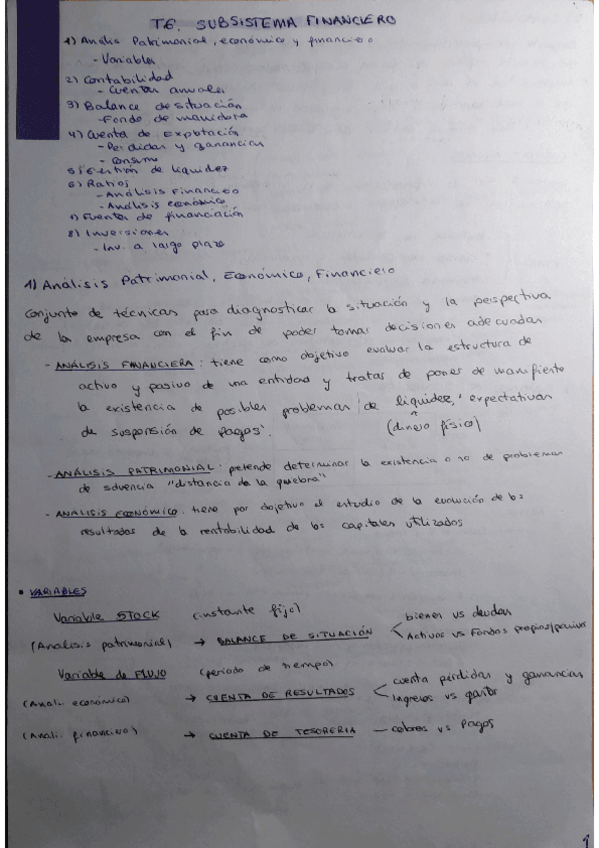 T6. SUBSISTEMA FINANCIERO
1) Análisis Patrimonial, económico y financiero
- Variables
2) Contabilidad
- Cuentas anuales
3) Balance de situación
- Fondo de maniobra
4) Cuenta de Explotación
- Perdidas y ganancias
- Consumo
5) Gestión de liquidez
6) Ratios
- Análisis Financiero
- Análisis económico
7) Fuentes de financiación
8) Inversiones
- Inv. a largo plazo
1) Análisis Patrimonial, Económico, Financiero
Conjunto de técnicas para diagnosticar la situación y la perspectiva
de la empresa con el fin de poder tomar decisiones adecuadas
- ANÁLISIS FINANCIERA: tiene como objetivo evaluar la estructura de
activo y pasivo de una entidad y tratas de poner de manifiesto
la existencia de posibles problemas 'de liquidez,' expectativas
de suspensión de pagos'. (dinero físico)
- ANÁLISIS PATRIMONIAL: pretende determinar la existencia o no de problemas
de solvencia "distancia de la quiebra"
- ANALISIS ECONÓMICO: tiene por objetivo el estudio de la evolución de los
resultados de la rentabilidad de los capitales utilizados
• VARIABLES
Variable STOCK (instante fijo)
(Analisis patrimonial) → BALANCE DE SITUACIÓN < bienes vs deudas
Activos vs Fondos propios/pasivos
Variable de FLUJO (periodo de tiempo)
(Anali. económico) → CUENTA DE RESULTADOS < cuenta pérdidas y ganancias
Ingresos vs gastos
(Anali. financiero) → CUENTA DE TESORERIA — cobros vs Pagos
1